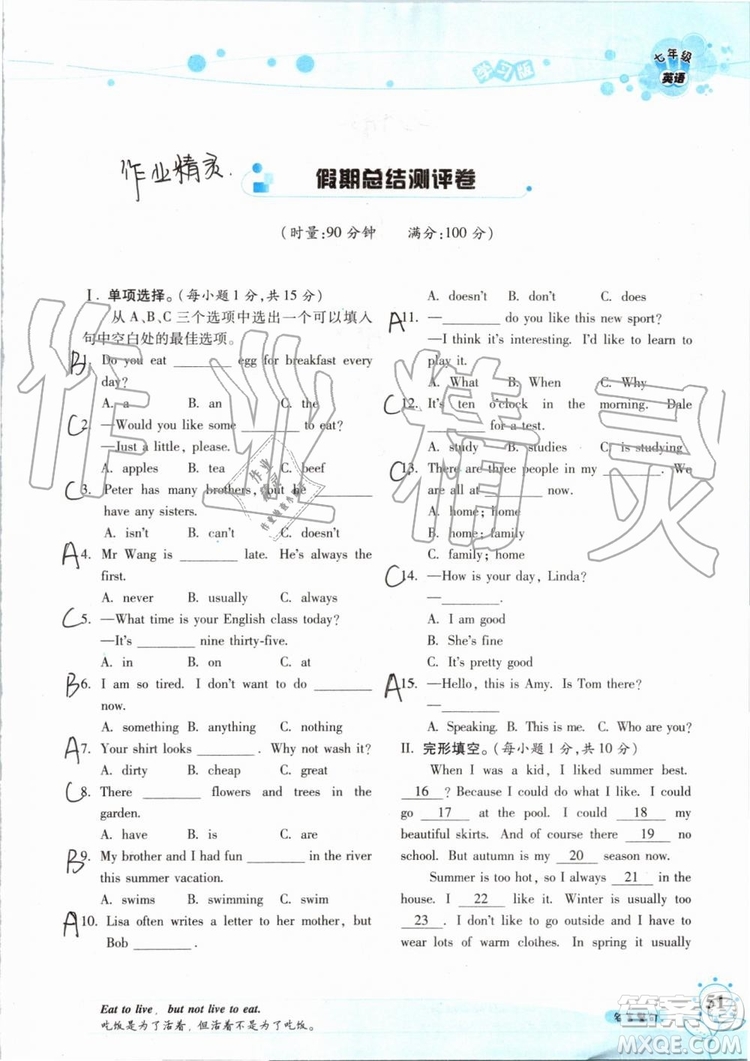 学习版
七年级
英语
作业精灵
假期总结测评卷
(时量:90 分钟 满分:100 分)
Ⅰ. 单项选择。(每小题 1 分,共 15 分)
从 A、B、C 三个选项中选出一个可以填入
句中空白处的最佳选项。
B 1. Do you eat ________ egg for breakfast every
day?
A. a B. an C. the
C 2. —Would you like some ________ to eat?
—Just a little, please.
A. apples B. tea C. beef
C 3. Peter has many brothers, but he ________
have any sisters.
A. isn't B. can't C. doesn't
A 4. Mr Wang is ________ late. He's always the
first.
A. never B. usually C. always
C 5. —What time is your English class today?
—It's ________ nine thirty-five.
A. in B. on C. at
B 6. I am so tired. I don't want to do ________
now.
A. something B. anything C. nothing
A 7. Your shirt looks ________. Why not wash it?
A. dirty B. cheap C. great
C 8. There ________ flowers and trees in the
garden.
A. have B. is C. are
B 9. My brother and I will go ________ in the river
this summer vacation.
A. swims B. swimming C. swim
A 10. Lisa often writes a letter to her mother, but
Bob ________.
A. doesn't B. don't C. does
A 11. —________ do you like this new sport?
—I think it's interesting. I'd like to learn to
play it.
A. What B. When C. Why
C 12. It's ten o'clock in the morning. Dale
________ for a test.
A. study B. studies C. is studying
C 13. There are three people in my ________. We
are all at ________ now.
A. home; home
B. home; family
C. family; home
C 14. —How is your day, Linda?
—________
A. I am good
B. She's fine
C. It's pretty good
A 15. —Hello, this is Amy. Is Tom there?
—________
A. Speaking. B. This is me. C. Who are you?
Ⅱ. 完形填空。(每小题 1 分,共 10 分)
When I was a kid, I liked summer best.
16 ? Because I could do many things. I could
go 17 at the pool. I could 18 my
beautiful skirts. And of course there 19 no
school. But autumn is my 20 season now.
Summer is too hot, so I always 21 in the
house. I 22 it. Winter is usually too
23 . I don't like to go outside and I have to
wear lots of warm clothes. In spring it usually
Eat to live, but not live to eat.
吃饭是为了活着,但活着不是为了吃饭。
51
作业精灵
答案圈
MXQE.COM